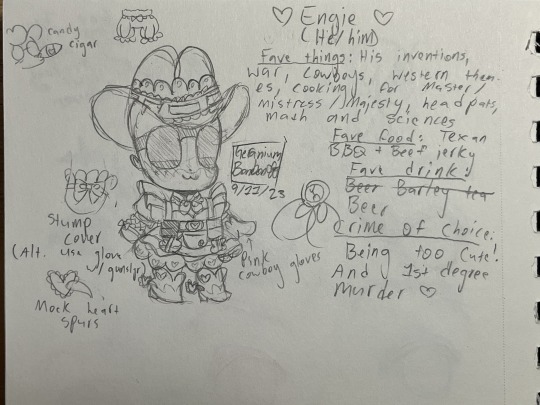 candy
cigar
♡ Engie ♡
(He/him)
Fave things: His inventions,
war, cowboys, western them-
es, cooking for Master/
mistress/Majesty, headpats,
math and sciences
Fave food: Texan
BBQ + Beef jerky
Fave drink:
Beer Barley tea
Beer
Crime of choice:
Being too cute!
And 1st degree
Murder ♡
9/11/23
Stump
cover
(Alt. use glove
w/
Pink
cowboy gloves
Mock heart
spurs